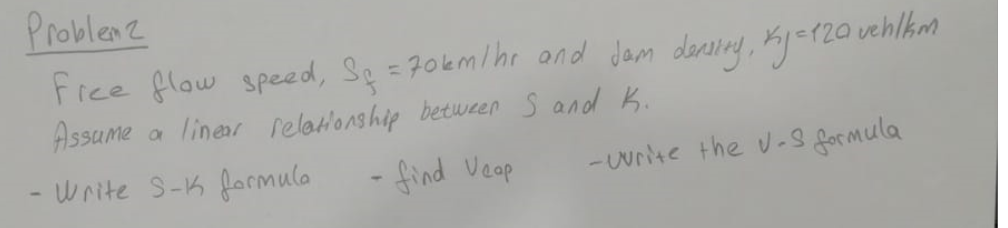 Problem 2
Free flow speed, Sf = 70km/hr and Jam density, Kj = 120 veh/km
Assume a linear relationship between S and K.
- Write S-K formula - find Vcap - Write the V-S formula